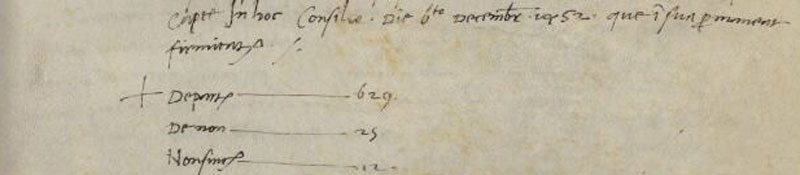 capte In hoc Consilio. Die 6to Decembr. 1452. que i sua permanent
firmitate /.
+ De parte 629
De non 25
Non sincere 12